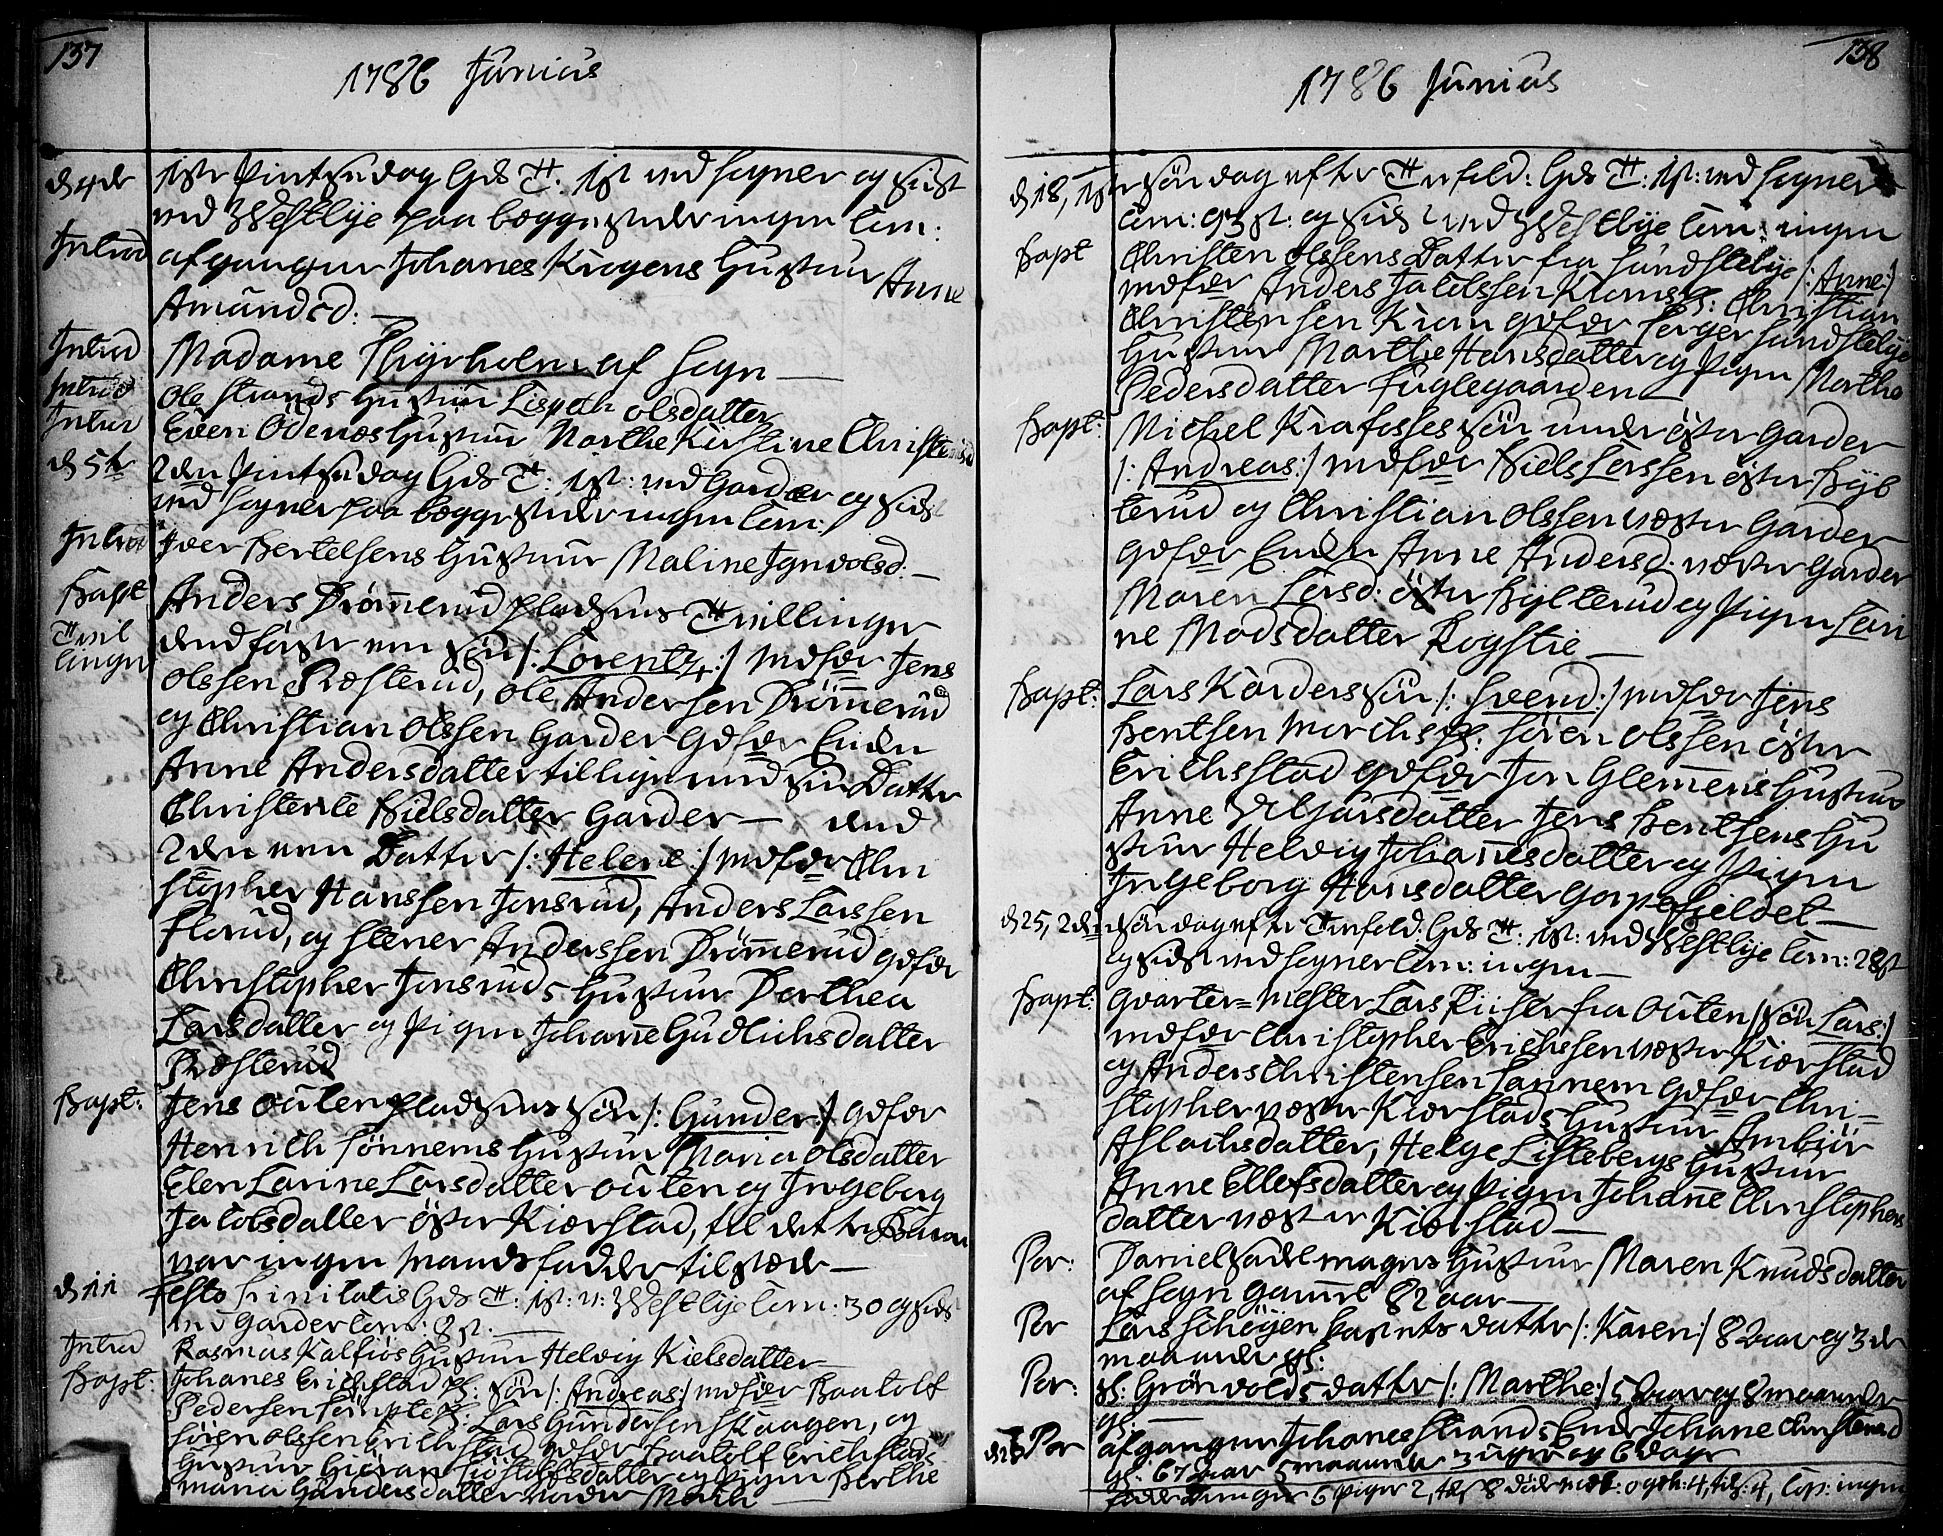 137
1786 Junius
d 4de 1ste Pintsedag Gds T: 1st ved Sogner og sidst
ved Westbye paa begge steder ingen Com:
Introd afgangne Johanes Krogens Hustrue Anne
Amunds d:
Introd Madame Thyrholm af Sogn
Introd Ole Strands Hustrue Lispeth olsdatter
Introd Even Ödenæs Hustrue Marthe Kirstine Christensd
d 5te 2den Pintsedag Gds T: 1st: ved Garder og sidst
ved Sogner paa begge steder ingen Com:/
Introd Iver Bertelsens Hustrue Maline Ignvolsd:
Bapt Anders Drömerud Pladsens Tvillinger
Tvil det förste een sön /: Lorentz :/ mdfdr Jens
linger olssen Præsterud, ole Andersen Drömerud
og Christian olssen Garder qdfdr Enken
Anne Andersdatter tilligemed sin Datter
Christente Nielsdatter Garder — det
2den een Datter /: Helene :/ mdfdr Chri
stopher Hanssen Jonsrud, Anders Larssen
Florud, og Stener Anderssen Drömerud qdfdr
Christopher Jonsruds Hustrue Dorthea
Larsdatter og Pigen Johane Gudlichsdatter
Præsterud
Bapt: Jens outen Pladsens sön /: Gunder :/ qdfdr
Henrich Sönnems Hustrue Maria olsdatter
Elen Larine Larsdatter outen og Ingeborg
Jacobsdatter öster Kiærstad, til dette Barn
var ingen Mandsfadder tilstede
d 11 Festo Trinitatis Gds T: 1st: v: Westbye Com: 30 og sidst
ved Garder Com: 8 st.
Introd Rasmus Kalfiös Hustrue Helvig Kielsdatter
Bapt: Johanes Erichstad Pl: sön /: Andreas :/ mdfdr Baatolf
Pedersen Pl: Lars Gundersen Skaagen, og
Sören olssen Erichstad qdfdr Baatolf Erichstads
Hustrue Giöran datter og Pigen Berthe
Maria Gundersdatter

138
1786 Junius
d 18, 1ste söndag efter Trefold: Gds T: 1st: ved Sogner
Com: 93 st: og sidst ved Westbye Com: ingen
Bapt Christen olssens Datter fra Sundstebye /: Anne :/
mdfdr Anders Jacobssen Pl: Christian
Christensen Krom qdfdr Torger Sundstebye
Hustrue Marthe Hansdatter og Pigen Marthe
Pedersdatter Fuglegaarden
Bapt: Michel Krafosses sön under öster Garder
/: Andreas :/ mdfdr Niels Larssen öster Hyb
terud og Christian olssen vester Garder
qdfdr Enken Anne Andersd. vester Garder
Maren Larsd. öster Hylterud og Pigen Lari
ne Madsdatter Rogstie
Bapt: Lars Karders sön /: Svend :/ mdfdr Jens
Bentsen Morchs Pl: Sören olssen öster
Erichsstad qdfdr Jon Glemmens Hustrue
Anne datter Jens Bentsens Hu
strue Helvig Johanesdatter og Pigen
Ingeborg Hansdatter Gorpefieldet
d 25, 2den söndag efter Trefold: Gds T: 1st: ved Westbye Com: 28 st
og sidst ved Sogner Com: ingen
Bapt: Qvarter=mester Lars Richter fra outen / sön Lars :/
mdfdr Christopher Erichssen vester Kiærstad
og Anders Christensen Sannem qdfdr Chri-
stopher vester Kiærstads Hustrue Ambiör
Aslachsdatter, Helge Lislebergs Hustrue
Anne Ellefsdatter og Pigen Johane Christophers
datter vester Kiærstad
Per: Daniel Hustrue Maren Knudsdatter
af Sogn gaml 82 aar
Per Lars Schöyens datter /: Karen :/ 8 aar og 3 de
maaneder gl:
Per: Pl: Grönvolds datter /: Marthe :/ 5 aar og 8 maaneder
gl:
Per afgangne Johanes Strands Enke Johane Christensd
gl: 67 aar 5 maaneder 3 uger og 6 dage
Drenge 6 Piger 2, tils 8 döde : 0 qk: 4, tils: 4, Cop: ingen